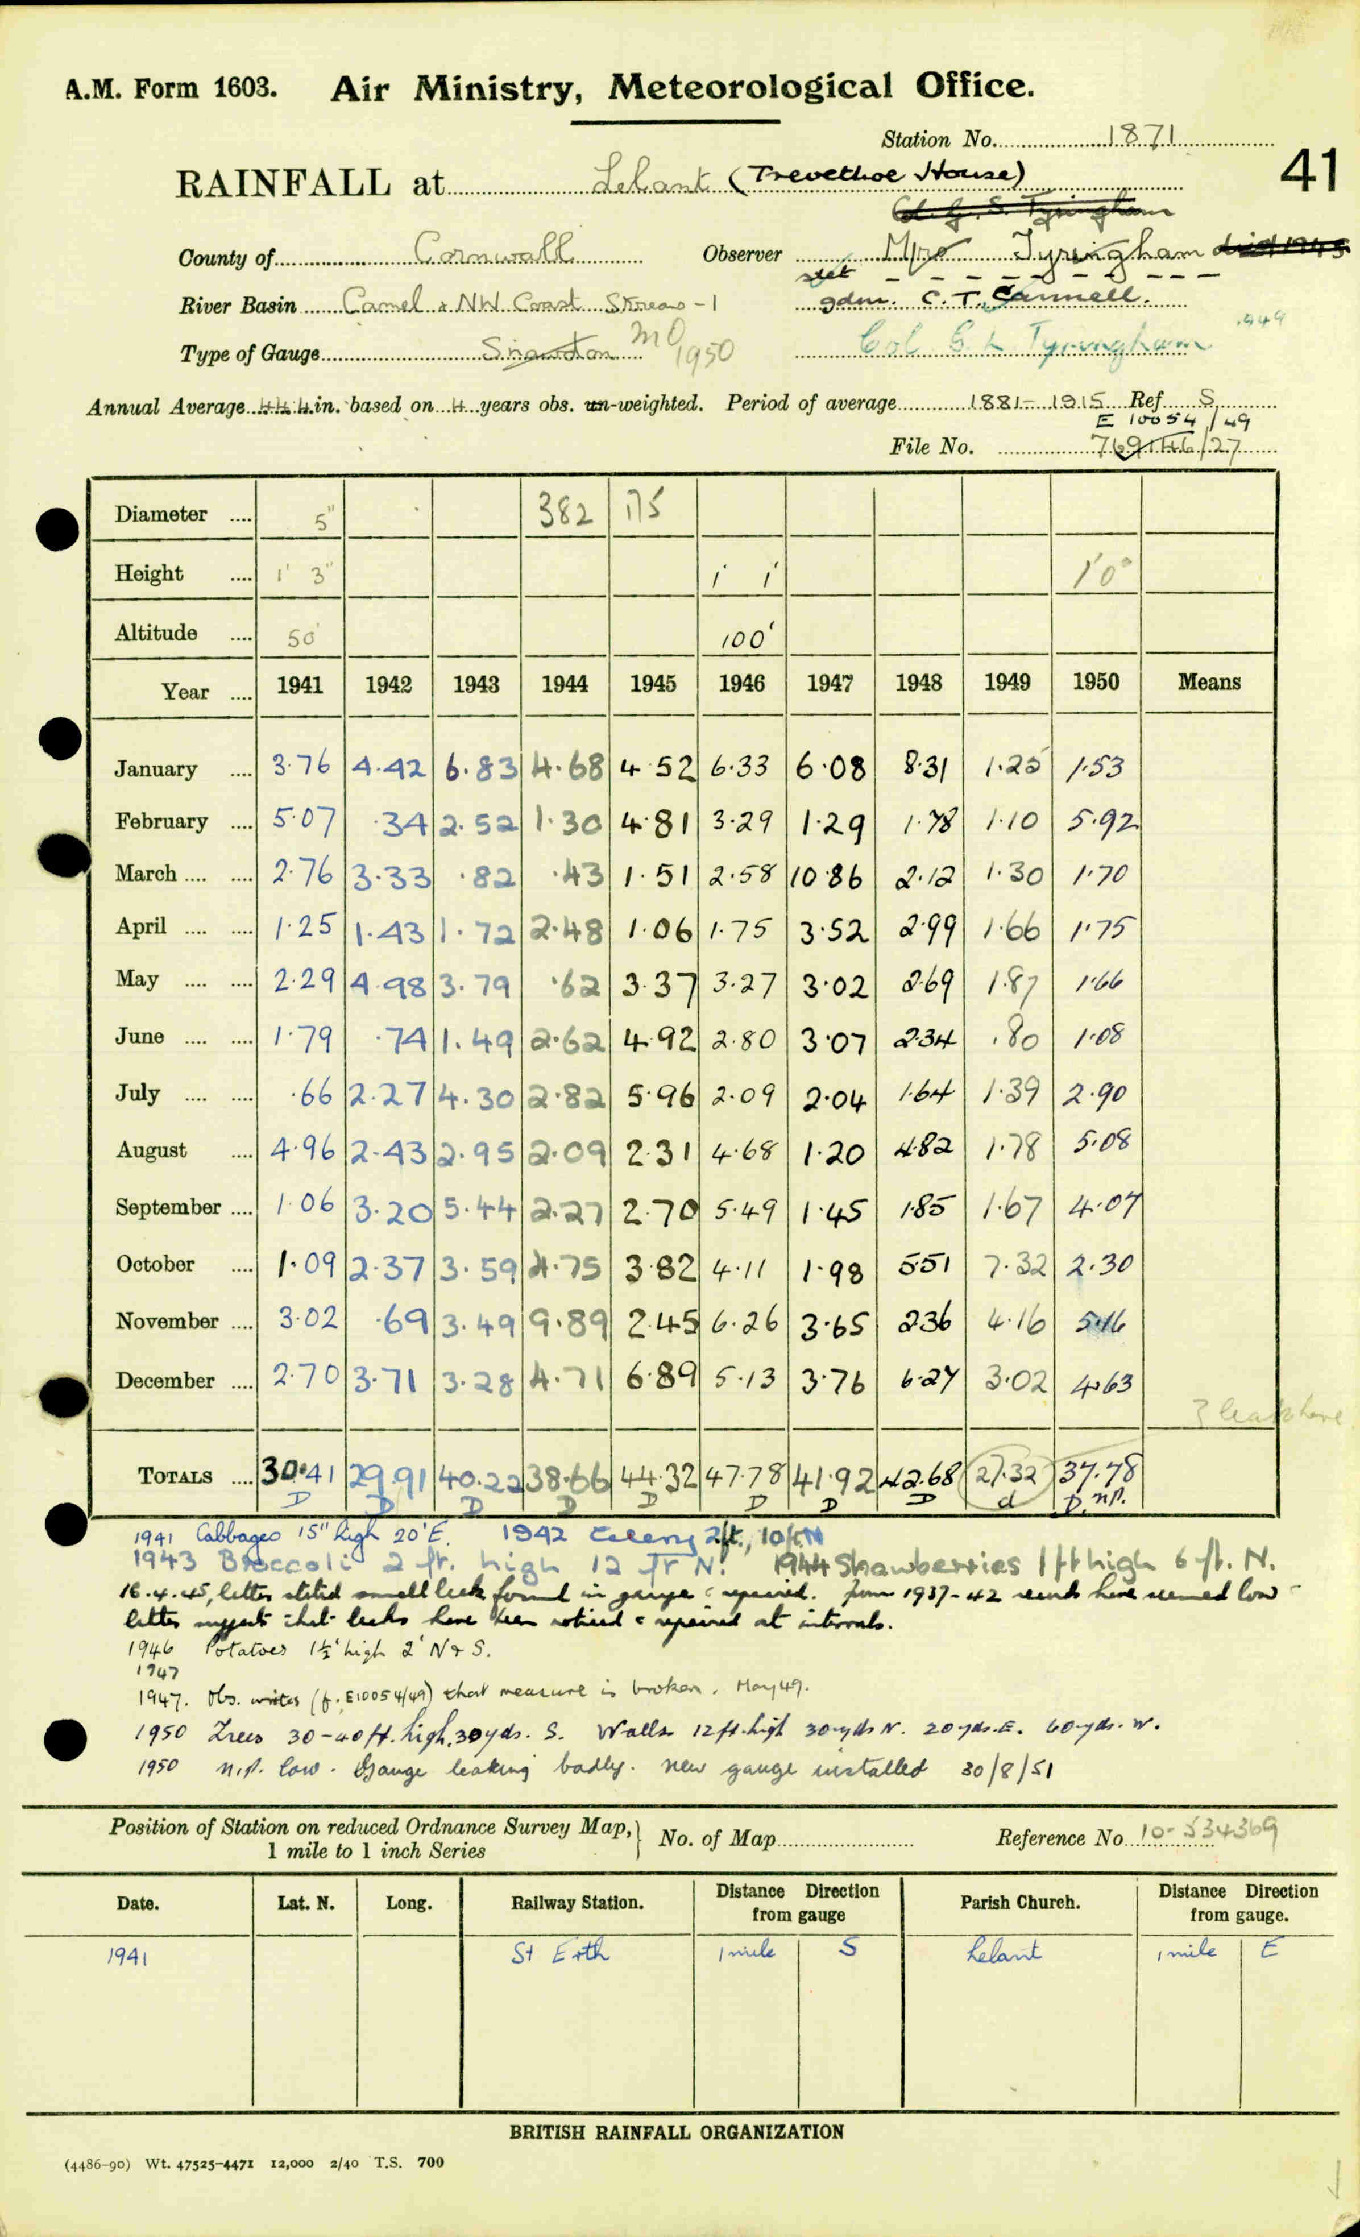 A.M. Form 1603. Air Ministry, Meteorological Office.
Station No. 1871
41
RAINFALL at Lelant (Trevethoe House)
Col. G. S. Tyringham
County of Cornwall Observer Mrs Tyringham died 1945
stet
River Basin Camel & NW Coast Streams - 1 gdnr. C. T. Cannell.
Type of Gauge Snowdon MO 1950 Col. Tyringham 1949
Annual Average 44.4 in. based on 4 years obs. un-weighted. Period of average 1881-1915 Ref S
E 10054/49
File No. 769146/27
Diameter .... 5" 382 175
Height .... 1' 3" 1' 1' 1'0"
Altitude .... 50' 100'
Year .... 1941 1942 1943 1944 1945 1946 1947 1948 1949 1950 Means
January .... 3.76 4.42 6.83 4.68 4.52 6.33 6.08 8.31 1.25 1.53
February .... 5.07 .34 2.52 1.30 4.81 3.29 1.29 1.78 1.10 5.92
March .... .... 2.76 3.33 .82 .43 1.51 2.58 10.86 2.12 1.30 1.70
April .... .... 1.25 1.43 1.72 2.48 1.06 1.75 3.52 2.99 1.66 1.75
May .... .... 2.29 4.98 3.79 .62 3.37 3.27 3.02 2.69 1.87 1.66
June .... .... 1.79 .74 1.49 2.62 4.92 2.80 3.07 2.34 .80 1.08
July .... .... .66 2.27 4.30 2.82 5.96 2.09 2.04 1.64 1.39 2.90
August .... 4.96 2.43 2.95 2.09 2.31 4.68 1.20 4.82 1.78 5.08
September .... 1.06 3.20 5.44 2.27 2.70 5.49 1.45 1.85 1.67 4.07
October .... 1.09 2.37 3.59 4.75 3.82 4.11 1.98 5.51 7.32 2.30
November .... 3.02 .69 3.49 9.89 2.45 6.26 3.65 2.36 4.16 5.16
December .... 2.70 3.71 3.28 4.71 6.89 5.13 3.76 6.27 3.02 4.63
? leak here
TOTALS .... 30.41 29.91 40.22 38.66 44.32 47.78 41.92 42.68 27.32 37.78
D D D D D D D D d D. n.p.
1941 Cabbages 15" high 20' E. 1942 Celery 2ft., 10ft N
1943 Broccoli 2 ft. high 12 ft N. 1944 Strawberries 1 ft high 6 ft. N.
16.4.45, letter stated small leak found in gauge & repaired. From 1937-42 records have seemed low -
letter suggests that leaks have been noticed & repaired at intervals.
1946 Potatoes 1½' high 2' N & S.
1947
1947. Obs. writes (f. E10054/49) that measure is broken. May 49.
1950 Trees 30-40 ft. high. 30 yds. S. Walls 12 ft. high 30 yds N. 20 yds. E. 60 yds. W.
1950 n.p. low. Gauge leaking badly. new gauge installed 30/8/51
Position of Station on reduced Ordnance Survey Map, No. of Map Reference No. 10-534369
1 mile to 1 inch Series
Date. Lat. N. Long. Railway Station. Distance Direction from gauge Parish Church. Distance Direction from gauge.
1941 St Erth 1 mile S Lelant 1 mile E
BRITISH RAINFALL ORGANIZATION
(4486-90) Wt. 47525-4471 12,000 2/40 T.S. 700